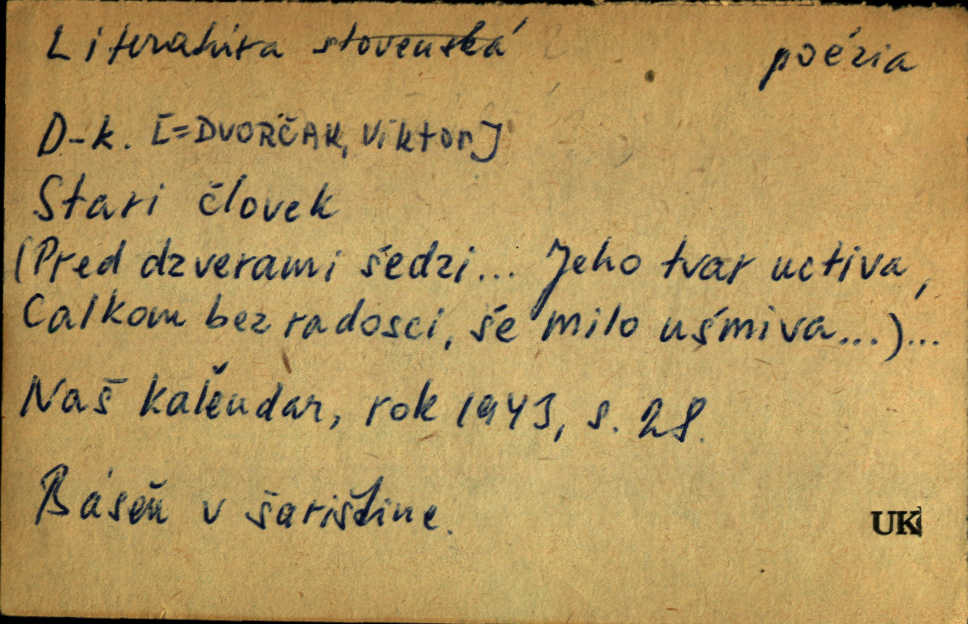 Literatúra slovenská poézia
D-k. [=DVORČÁK, Viktor]
Stari človek
(Pred dzverami šedzi... Jeho tvar uctiva,
Calkom bez radosci, še milo ušmiva...)...
Naš kaleňdar, rok 1943, s. 28.
Báseň v šarištine.
UK